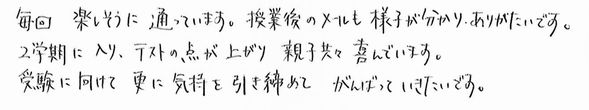 毎回 楽しそうに 通っています。授業後のメールも 様子が分かり、ありがたいです。
2学期に入り、テストの点が上がり 親子共々 喜んでいます。
受験に向けて 更に 気持を引き締めて がんばって いきたいです。